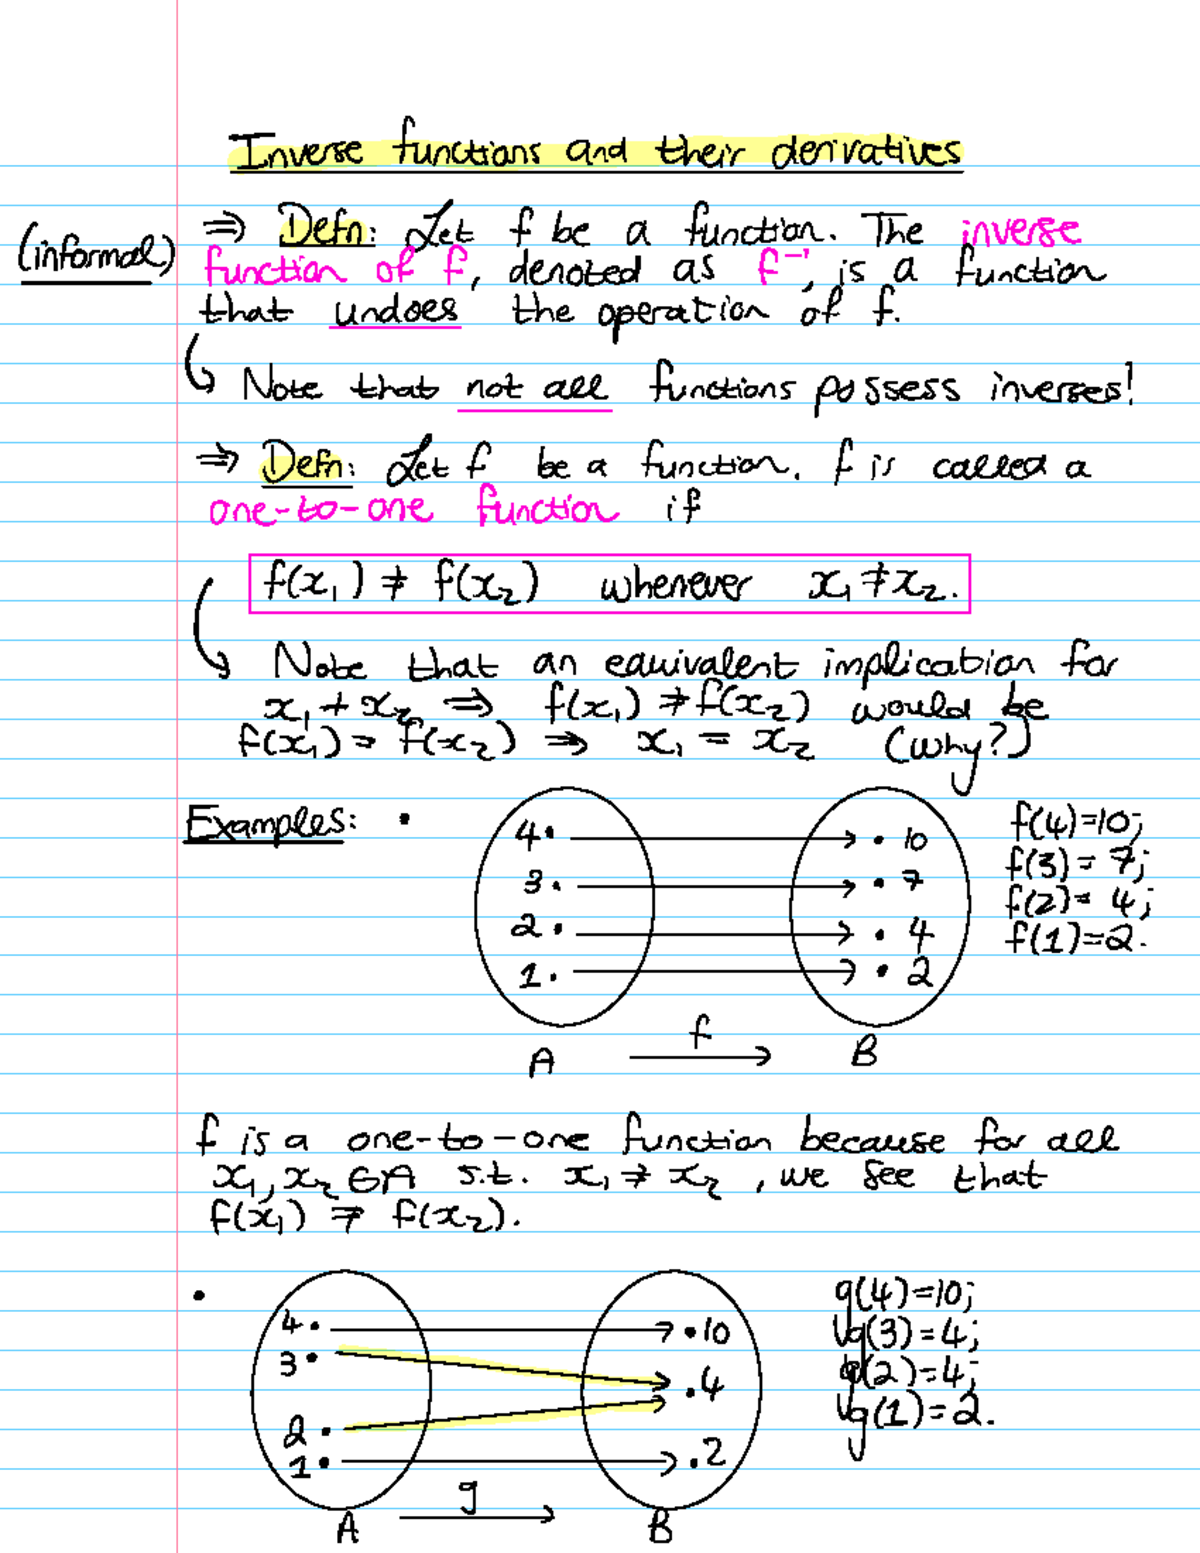 Inverse functions and their derivatives
(informal) ⇒ Defn: Let f be a function. The inverse
function of f, denoted as f⁻¹, is a function
that undoes the operation of f.
↳ Note that not all functions possess inverses!
⇒ Defn: Let f be a function. f is called a
one-to-one function if
f(x₁) ≠ f(x₂) whenever x₁ ≠ x₂.
↳ Note that an equivalent implication for
x₁ ≠ x₂ ⇒ f(x₁) ≠ f(x₂) would be
f(x₁) = f(x₂) ⇒ x₁ = x₂ (Why?)
Examples: •
4 • → • 10 f(4)=10;
3 • → • 7 f(3) = 7;
2 • → • 4 f(2) = 4;
1 • → • 2 f(1)=2.
A f → B
f is a one-to-one function because for all
x₁, x₂ ∈ A s.t. x₁ ≠ x₂, we see that
f(x₁) ≠ f(x₂).
•
4 • → • 10 g(4)=10;
3 • → • 4 g(3)=4;
2 • g(2)=4;
1 • → • 2 g(1)=2.
A g → B